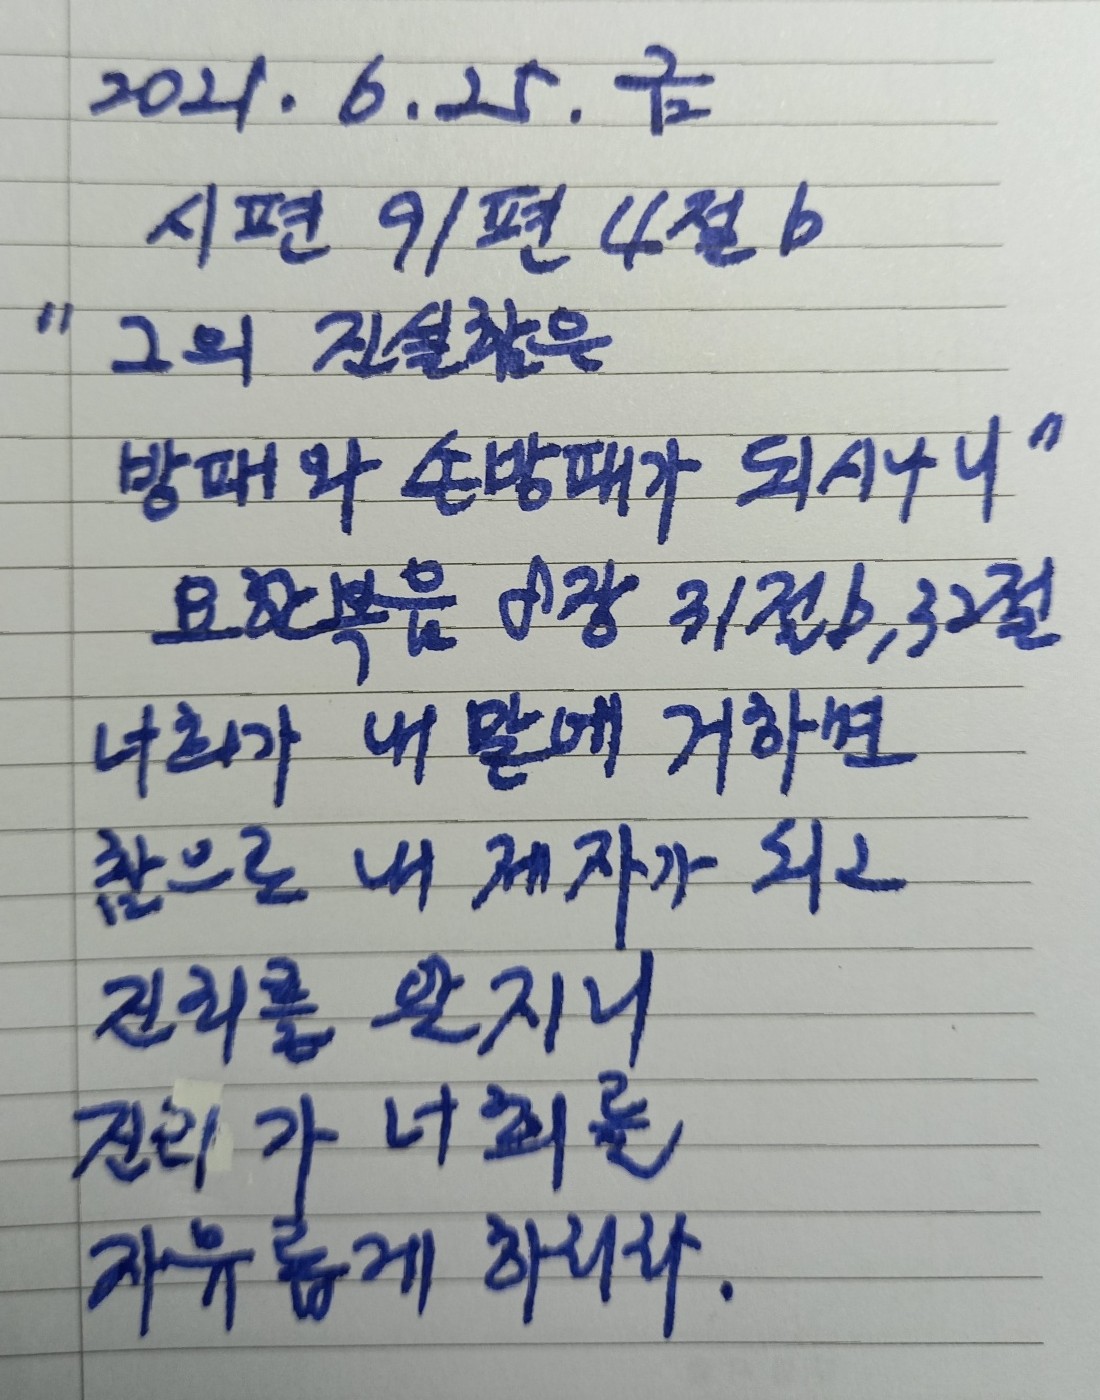 2021. 6. 25. 금
시편 91편 4절 b
" 그의 진실함은
방패와 손방패가 되시나니"
요한복음 8장 31절b, 32절
너희가 내 말에 거하면
참으로 내 제자가 되고
진리를 알지니
진리가 너희를
자유롭게 하리라.